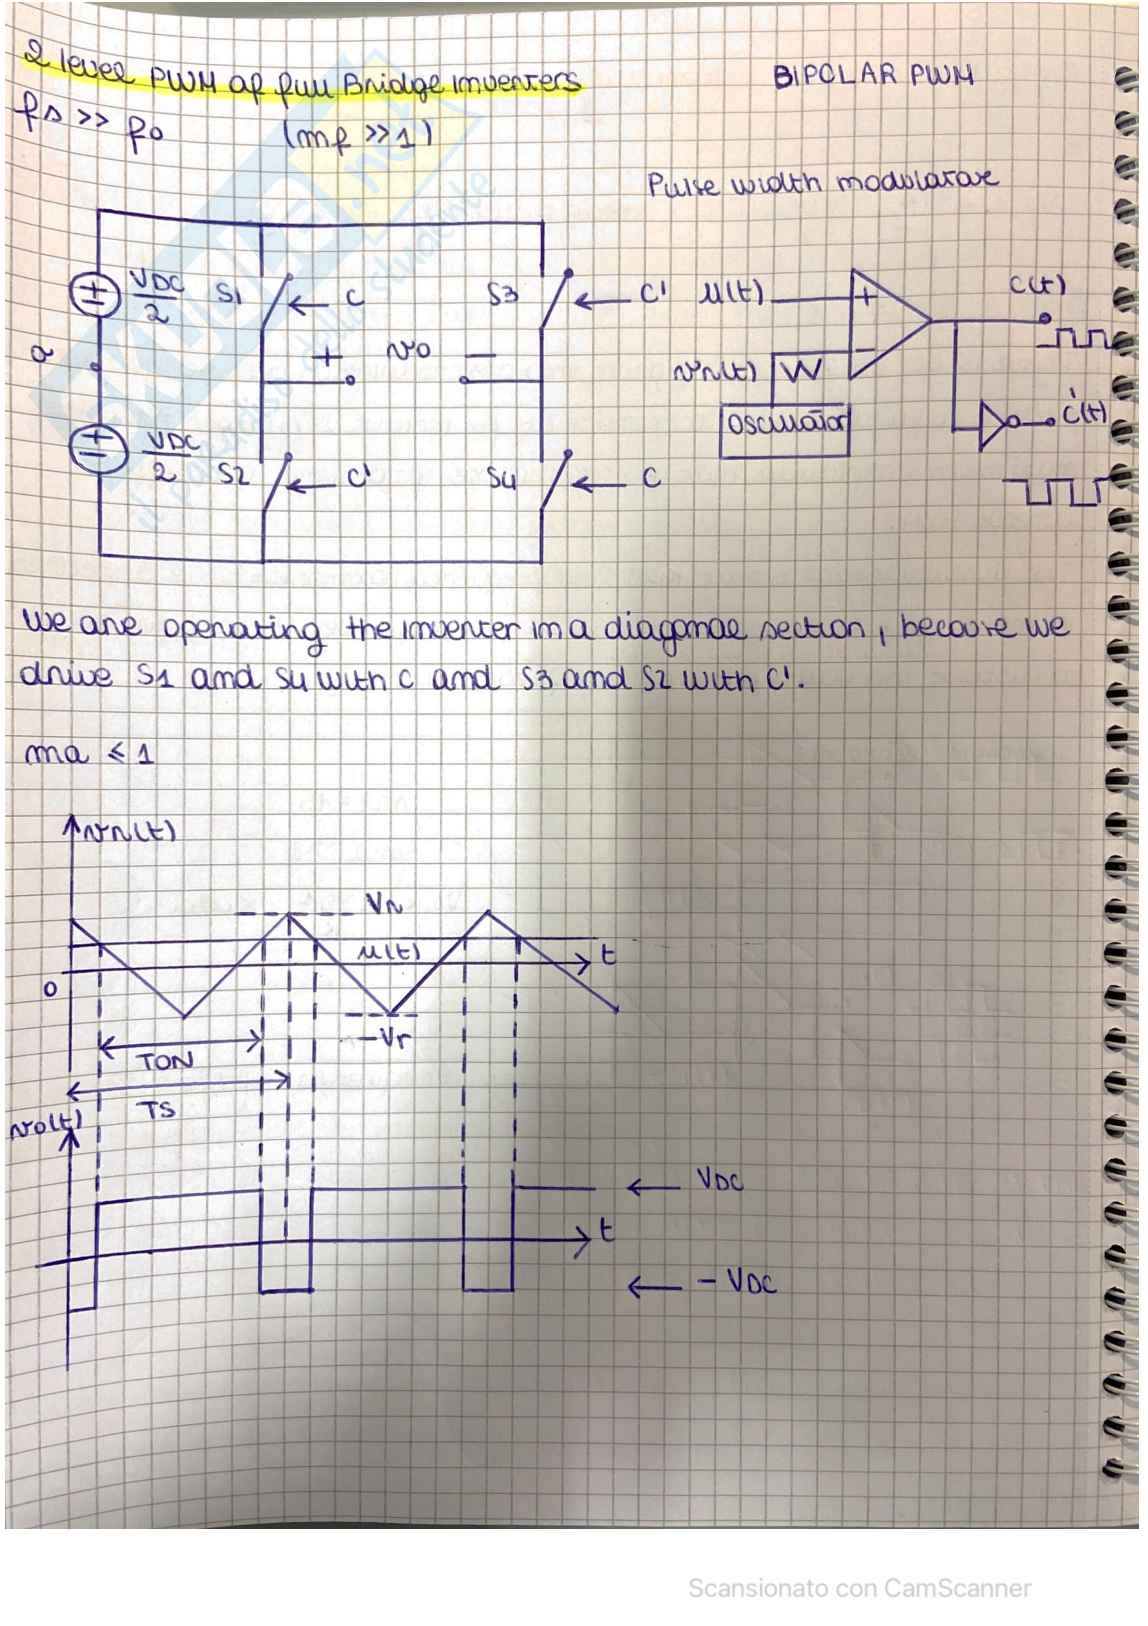 2 level PWM of full Bridge inverters
BIPOLAR PWM
fs >> fo (mf >> 1)
Pulse width modulator
VDC/2 S1 C S3 C' μ(t) + C(t)
a + vo - vr(t) -
oscillator C'(t)
VDC/2 S2 C' S4 C
we are operating the inverter in a diagonal section, because we
drive S1 and S4 with C and S3 and S2 with C'.
ma ≤ 1
vr(t)
Vr
μ(t) t
0
-Vr
TON
TS
vo(t)
VDC
t
- VDC
Scansionato con CamScanner